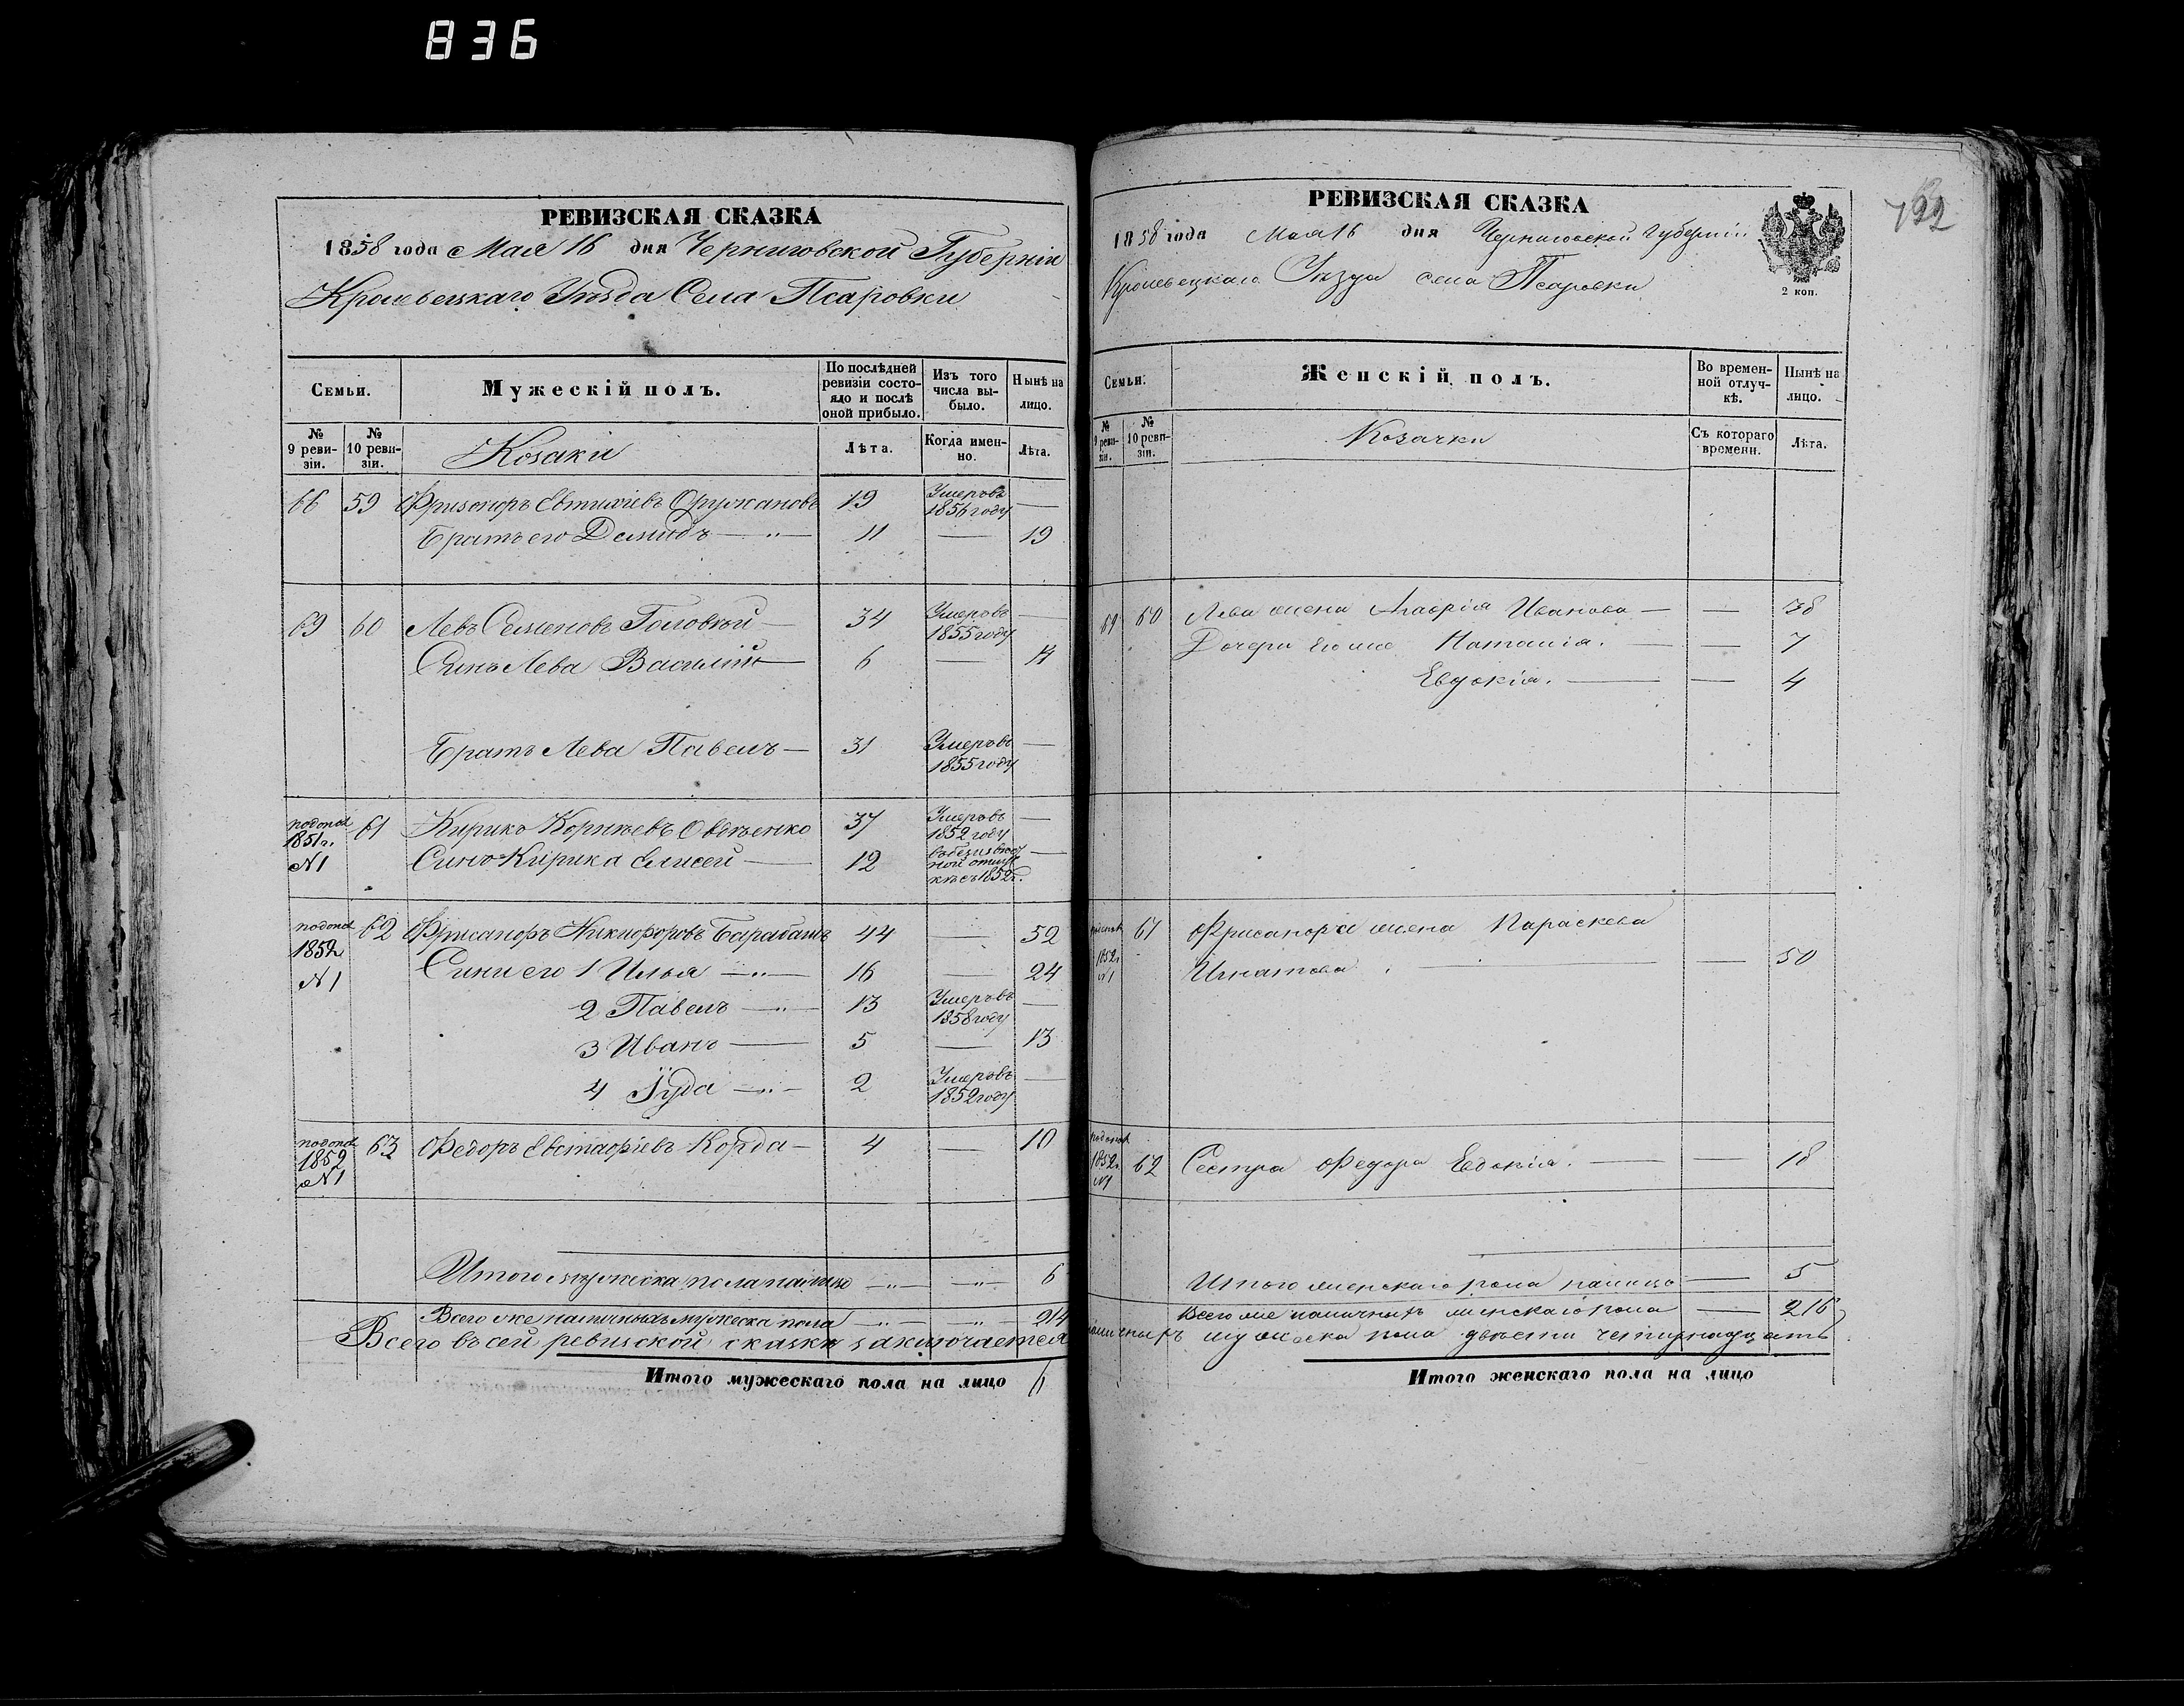 836
РЕВИЗСКАЯ СКАЗКА
1858 года Мая 16 дня Черниговской Губерніи
Кролевецкаго Уѣзда Села Псаровки
Семьи.
Мужескій полъ.
По послѣдней ревизіи состояло и послѣ оной прибыло.
Изъ того числа выбыло.
Нынѣ на лицо.
№ 9 ревизіи.
№ 10 ревизіи.
Козаки
Лѣта.
Когда именно.
Лѣта.
66 59 Евтихіевъ 19 Умеръ въ 1856 году —
Братъ его Демидъ —"— 11 — 19
69 60 Левъ Семеновъ Головкій — 34 Умеръ въ 1855 году —
Синъ Лева Василій — 6 —
Братъ Лева Павелъ — 31 Умеръ въ 1855 году —
по допол 1851 г. №1 61 Кирико Корнѣевъ Овдѣенко 37 Умеръ въ 1852 году —
Синъ Кирика Елисей — 12 въ безизвѣстной отлучкѣ съ 1852 г. —
по допол 1852 №1 62 Фрисанфъ Никифоровъ Барабашъ 44 — 52
Сини его 1 Илья —"— 16 — 24
2 Павелъ —"— 13 Умеръ въ 1858 году —
3 Иванъ — 5 — 13
4 Іуда —"— 2 Умеръ въ 1852 году —
по допол 1852 №1 63 Федоръ Евстафіевъ Корда — 4 — 10
Итого мужеска пола налицо —"— —"— 6
Всего же наличныхъ мужеска пола —"— —"— 214
Всего въ сей ревизской сказкѣ заключается
Итого мужескаго пола на лицо
РЕВИЗСКАЯ СКАЗКА
1858 года Мая 16 дня Черниговской Губерніи
Кролевецкаго Уѣзда села Псаровки
2 коп.
Семьи.
Женскій полъ.
Во временной отлучкѣ.
Нынѣ на лицо.
№ 9 ревизіи.
№ 10 ревизіи.
Козачки
Съ котораго времени.
Лѣта.
69 60 Лева жена Иванова — — 38
Дочери его Наталія. — — 7
Евдокія. — — 4
1852 г №1 61 Фрисанфа жена Параскева
Игнатова — — 50
по допол 1852 г. №1 62 Сестра Федора Евдокія. — — 18
Итого женскаго пола налицо — 5
Всего же наличныхъ женскаго пола — 216
наличныхъ мужеска пола двѣсти четирнадцать
Итого женскаго пола на лицо